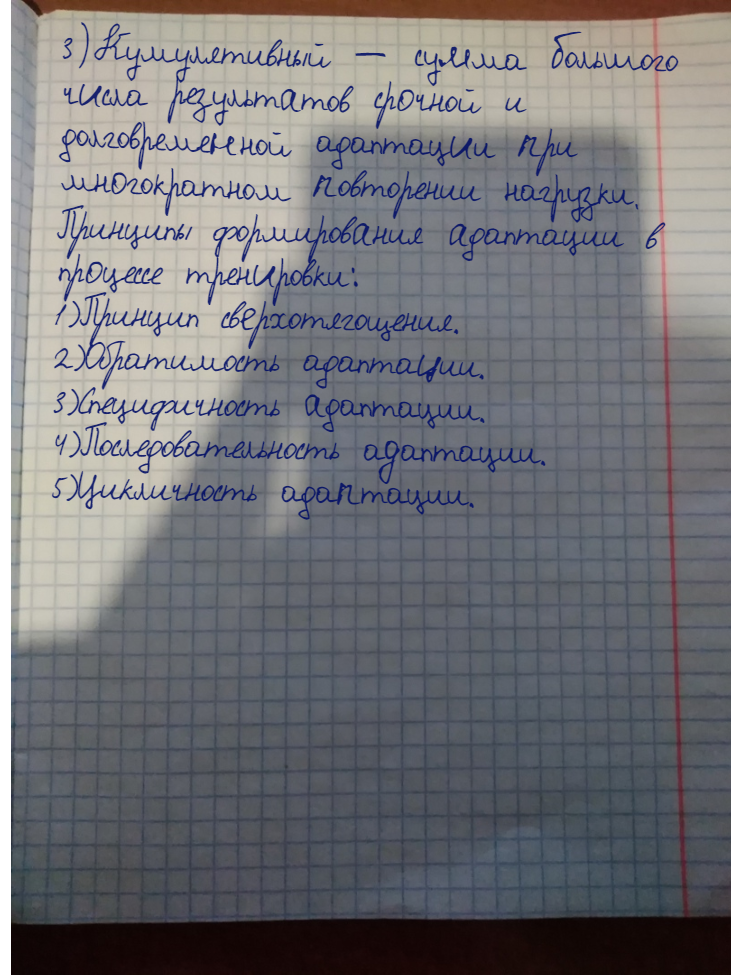 3) Кумулятивный — сумма большого
числа результатов срочной и
долговременной адаптации при
многократном повторении нагрузки.
Принципы формирования адаптации в
процессе тренировки:
1) Принцип сверхотягощения.
2) Обратимость адаптации.
3) Специфичность адаптации.
4) Последовательность адаптации.
5) Цикличность адаптации.